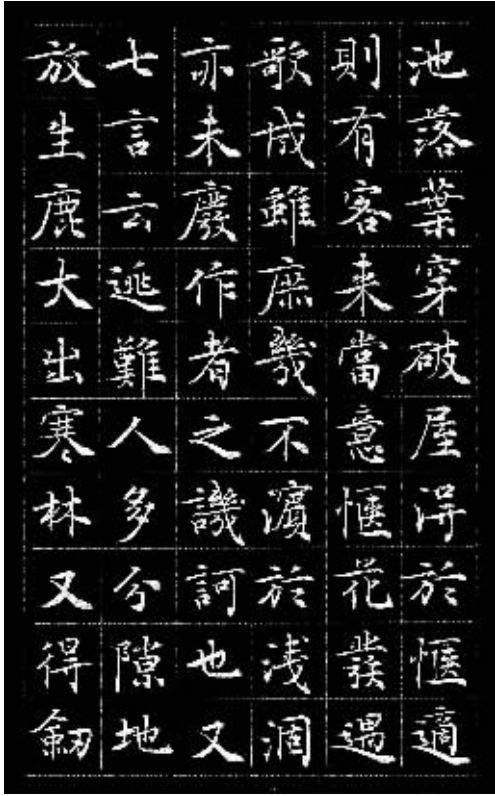 池落葉穿破屋淂於愜適
則有客来當意愜花發遇
歌成雖庶幾不濵於浅涸
亦未廢作者之譏訶也又
七言云逃難人多分隙地
放生鹿大出寒林又得劒